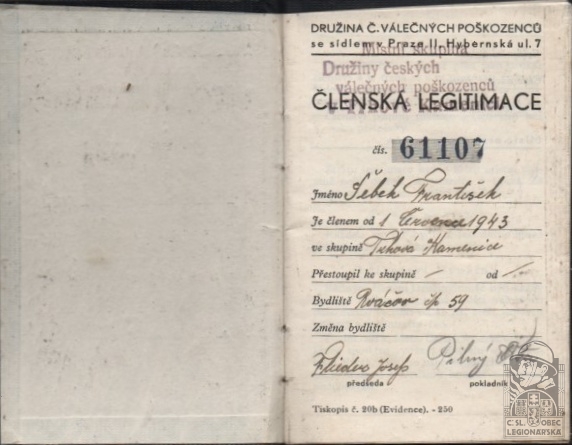 DRUŽINA Č. VÁLEČNÝCH POŠKOZENCŮ
se sídlem v Praze II. Hybernská ul. 7
Místní skupina
Družiny českých
válečných poškozenců
ČLENSKÁ LEGITIMACE
čís. 61107
Jméno Šebek František
Je členem od 1 Července 1943
ve skupině Trhová Kamenice
Přestoupil ke skupině — od —
Bydliště čp 59
Změna bydliště
Josef Pilný
předseda pokladník
Tiskopis č. 20b (Evidence). - 250
Č. SL. OBEC
LEGIONÁŘSKÁ